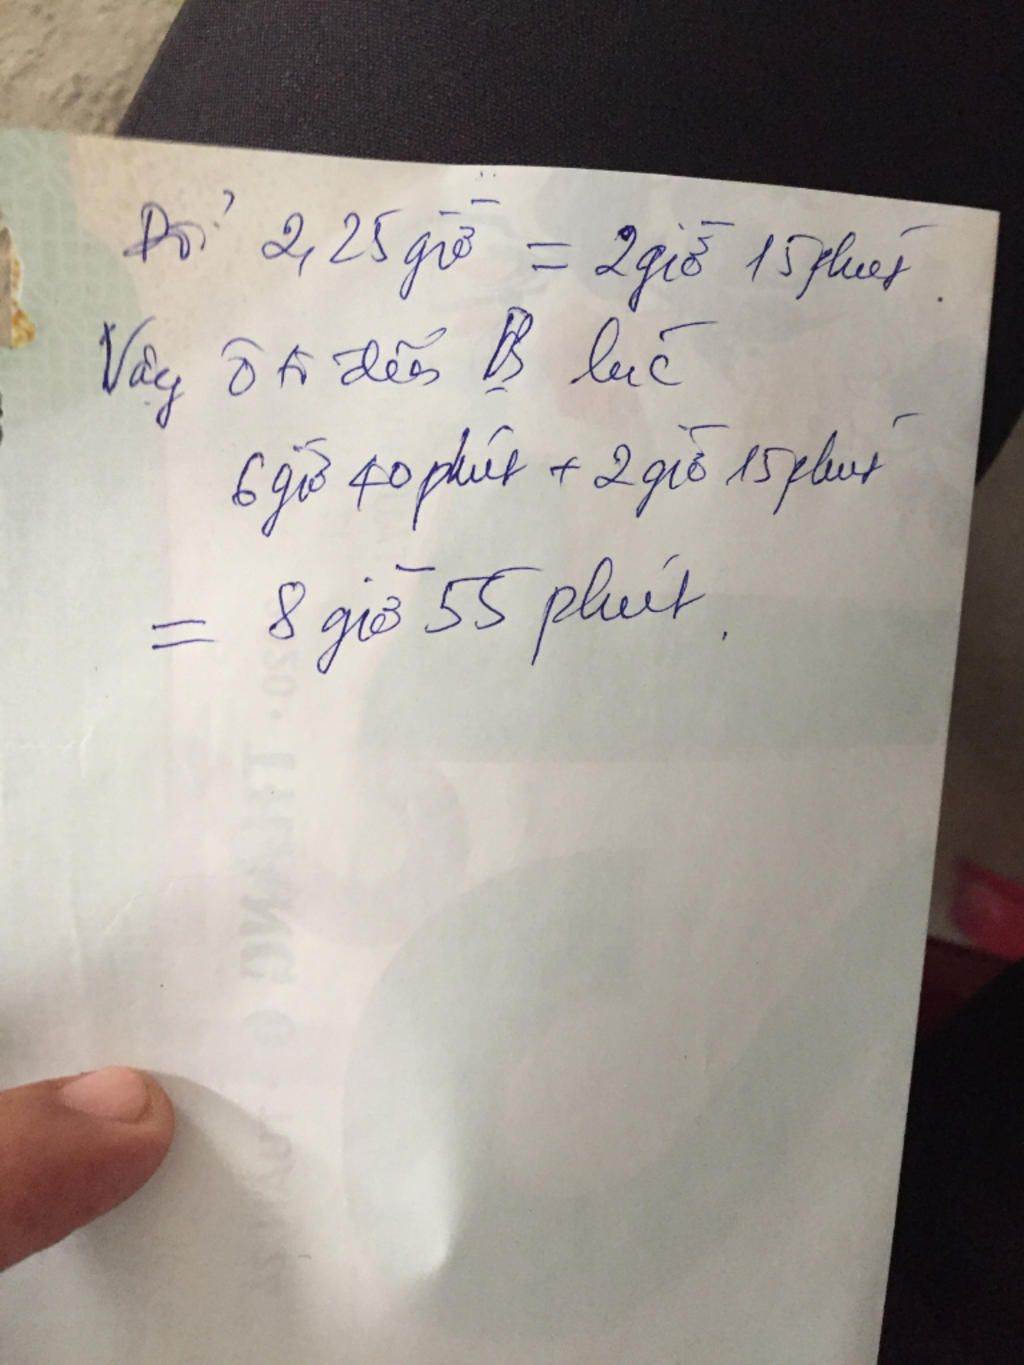 Đổi 2,25 giờ = 2 giờ 15 phút.
Vậy ô tô đến B lúc
6 giờ 40 phút + 2 giờ 15 phút
= 8 giờ 55 phút.